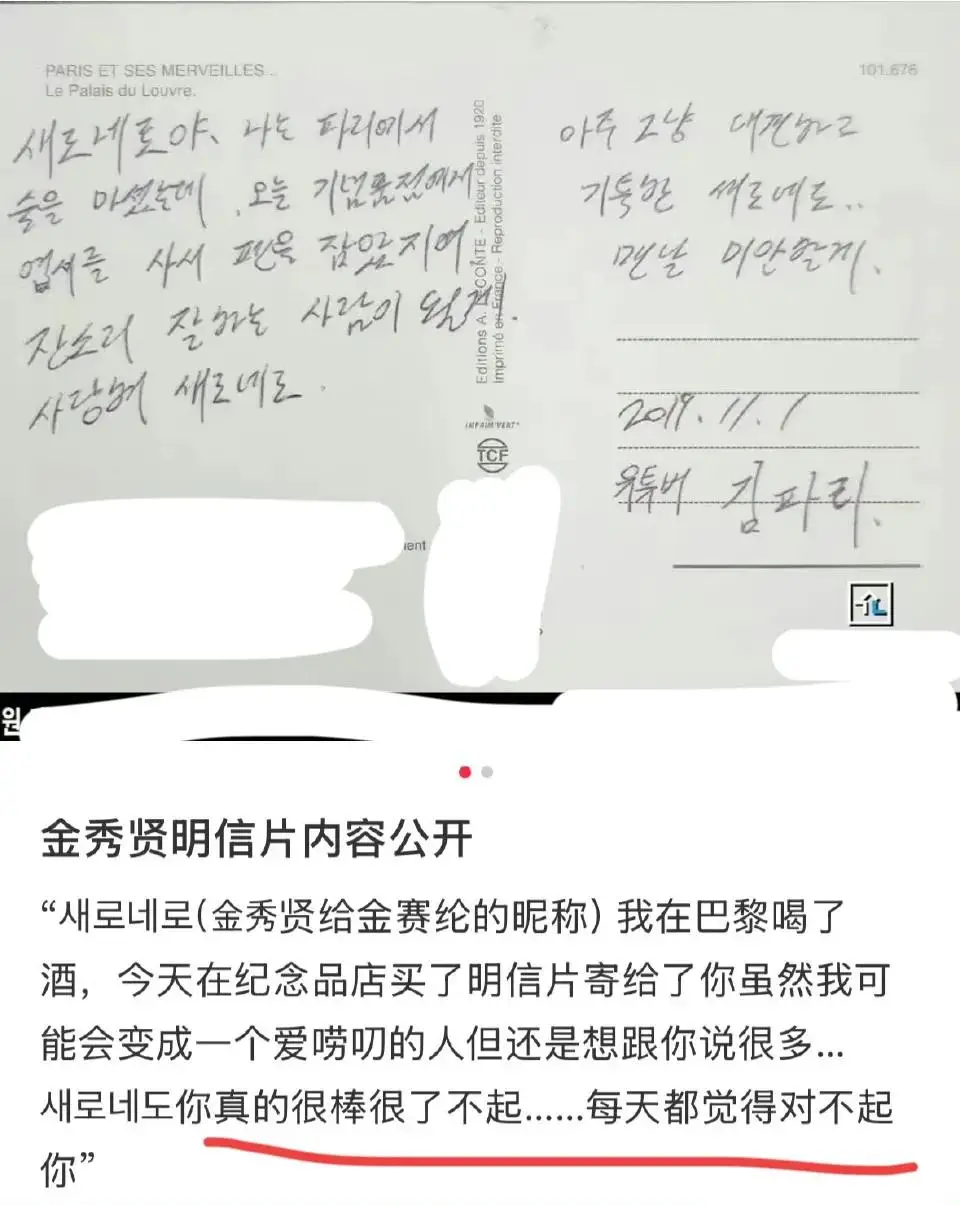 PARIS ET SES MERVEILLES...
Le Palais du Louvre.
101.676
새로네로야. 나는 파리에서
술을 마셨는데 . 오늘 기념품점에서
엽서를 사서 편육
잔소리 잘하는 사람이 될게.
사랑해 새로네로.
Editions A. LECONTE - Editeur depuis 1920
Imprimé en France - Reproduction interdite
IMPRIM'VERT®
TCF
아주 그냥 대견하고
기특한 쌔로네로..
맨날 미안할게.
2019.11.1
유튜버 김파리.
ient
원
金秀贤明信片内容公开
“새로네로(金秀贤给金赛纶的昵称) 我在巴黎喝了
酒，今天在纪念品店买了明信片寄给了你虽然我可
能会变成一个爱唠叨的人但还是想跟你说很多...
새로네도你真的很棒很了不起......每天都觉得对不起
你”